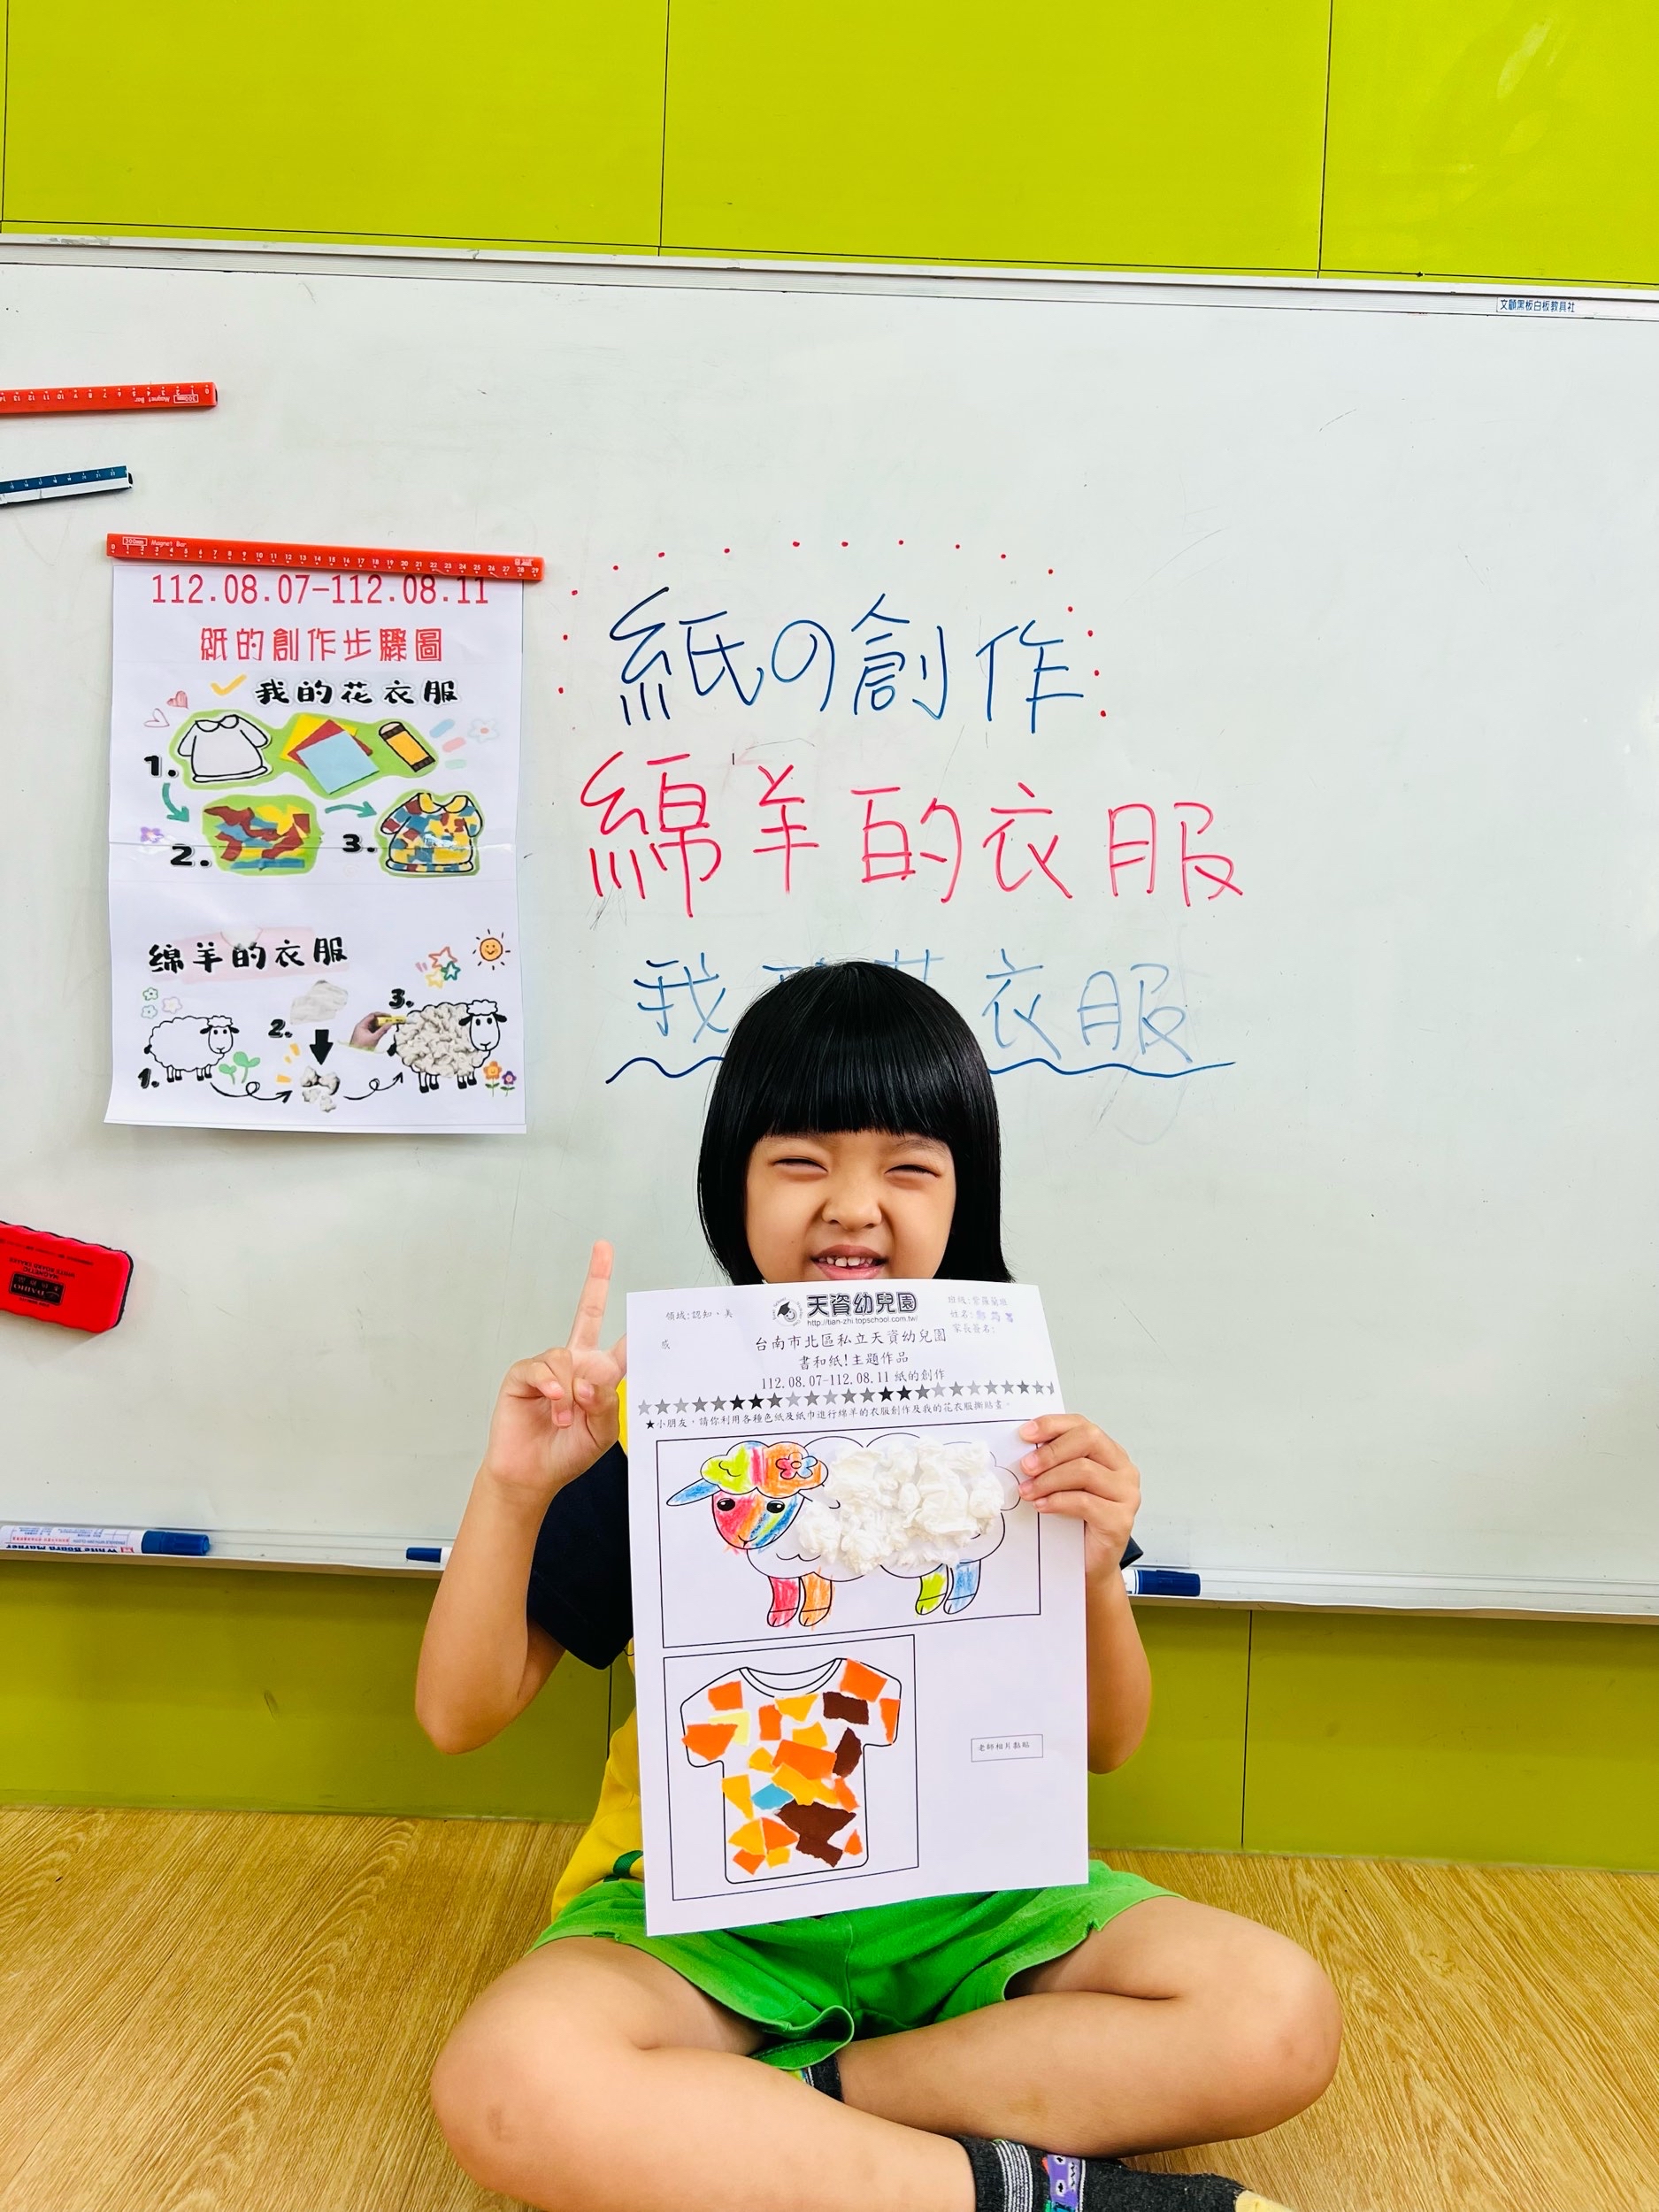 文顧黑板白板教具社
Magnet Bar 300mm
300mm Magnet Bar
112.08.07-112.08.11
紙的創作步驟圖
我的花衣服
1.
2.
3.
绵羊的衣服
1.
2.
3.
紙の創作
綿羊的衣服
我 花衣服
MAGNETIC
WHITE BOARD ERASER
White Board Marker
領域:認知、美感
天資幼兒園
http://tian-zhi.topschool.com.tw/
班級:紫羅蘭班
姓名:
家長簽名:
台南市北區私立天資幼兒園
書和紙!主題作品
112.08.07-112.08.11 紙的創作
★小朋友,請你利用各種色紙及紙巾進行綿羊的衣服創作及我的花衣服撕貼畫。
老師相片黏貼